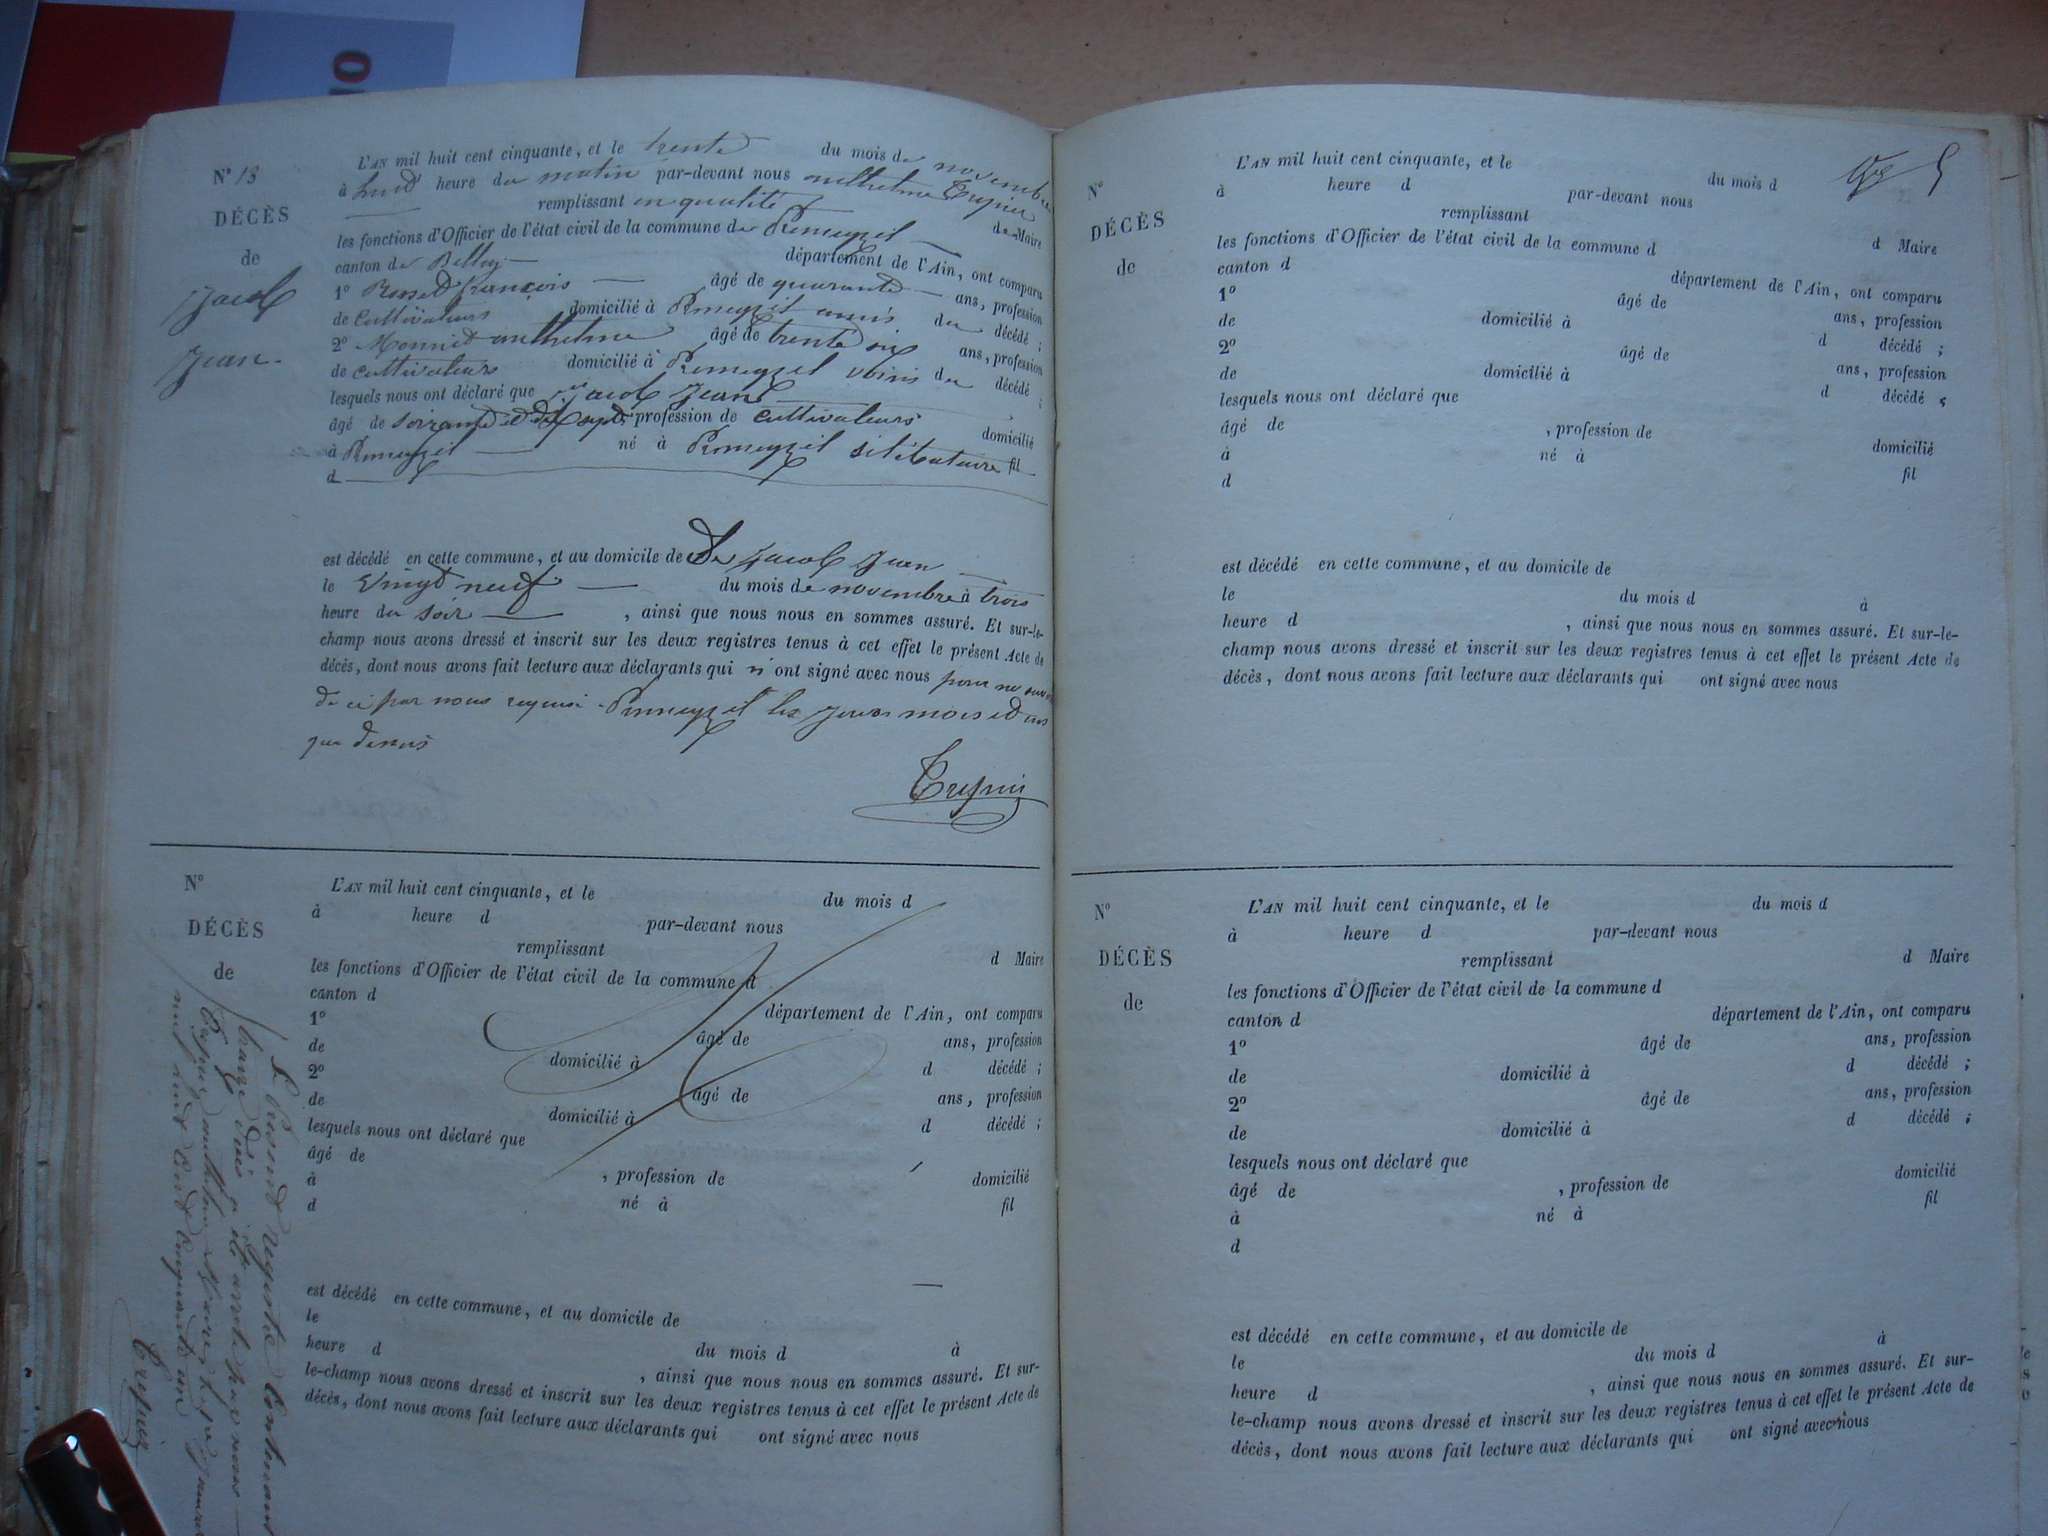 NO
N° 13
DÉCÈS
de
Jacob
Jean
L'AN mil huit cent cinquante, et le trente du mois de novembre
à huit heure du matin par-devant nous anthelme Crepin
remplissant en qualité de Maire
les fonctions d'Officier de l'état civil de la commune de Premeyzel
canton de Belley département de l'Ain, ont comparu
1° Rosset françois âgé de quarante ans, profession
de cultivateurs domicilié à Premeyzel amis du décédé ;
2° Monnet anthelme âgé de trente six ans, profession
de cultivateurs domicilié à Premeyzel voisins du décédé ;
lesquels nous ont déclaré que Jacob Jean
âgé de soixante et profession de cultivateurs domicilié
à Premeyzel né à Premeyzel fil
d
est décédé en cette commune, et au domicile de Jacob Jean
le vingt neuf du mois de novembre à trois
heure du soir , ainsi que nous nous en sommes assuré. Et sur-le-
champ nous avons dressé et inscrit sur les deux registres tenus à cet effet le présent Acte de
décès, dont nous avons fait lecture aux déclarants qui n' ont signé avec nous pour ne savoir
de ce par nous requis. Premeyzel les jours mois et ans
que dessus
N°
DÉCÈS
de
L'AN mil huit cent cinquante, et le du mois d
à heure d par-devant nous
remplissant d Maire
les fonctions d'Officier de l'état civil de la commune d
canton d département de l'Ain, ont comparu
1° âgé de ans, profession
de domicilié à d décédé ;
2° âgé de ans, profession
de domicilié à d décédé ;
lesquels nous ont déclaré que
âgé de , profession de domicilié
à né à fil
d
est décédé en cette commune, et au domicile de
le du mois d à
heure d , ainsi que nous nous en sommes assuré. Et sur-
le-champ nous avons dressé et inscrit sur les deux registres tenus à cet effet le présent Acte de
décès, dont nous avons fait lecture aux déclarants qui ont signé avec nous
Le Présent registre Contenant
arrêté par nous
anthelme Maire
mil huit Cent Cinquante un
N°
DÉCÈS
de
L'AN mil huit cent cinquante, et le du mois d
à heure d par-devant nous
remplissant d Maire
les fonctions d'Officier de l'état civil de la commune d
canton d département de l'Ain, ont comparu
1° âgé de ans, profession
de domicilié à d décédé ;
2° âgé de ans, profession
de domicilié à d décédé ;
lesquels nous ont déclaré que
âgé de , profession de domicilié
à né à fil
d
est décédé en cette commune, et au domicile de
le du mois d à
heure d , ainsi que nous nous en sommes assuré. Et sur-le-
champ nous avons dressé et inscrit sur les deux registres tenus à cet effet le présent Acte de
décès, dont nous avons fait lecture aux déclarants qui ont signé avec nous
N°
DÉCÈS
de
L'AN mil huit cent cinquante, et le du mois d
à heure d par-devant nous
remplissant d Maire
les fonctions d'Officier de l'état civil de la commune d
canton d département de l'Ain, ont comparu
1° âgé de ans, profession
de domicilié à d décédé ;
2° âgé de ans, profession
de domicilié à d décédé ;
lesquels nous ont déclaré que
âgé de , profession de domicilié
à né à fil
d
est décédé en cette commune, et au domicile de
le du mois d à
heure d , ainsi que nous nous en sommes assuré. Et sur-
le-champ nous avons dressé et inscrit sur les deux registres tenus à cet effet le présent Acte de
décès, dont nous avons fait lecture aux déclarants qui ont signé avec nous